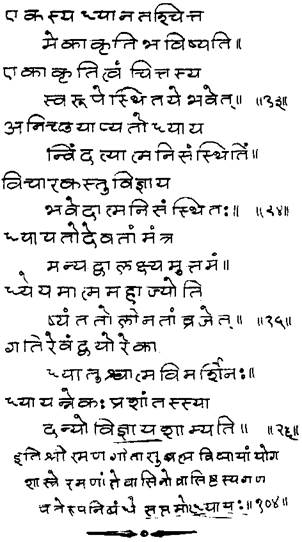 एकस्य ध्यानतश्चित्त
मेकाकृति भविष्यति॥
एकाकृतित्वं चित्तस्य
स्वरूपे स्थितये भवेत्॥ ॥२३॥
अनिच्छयाप्यतो ध्याय
न्विंदत्यात्मनि संस्थितिं॥
विचारकस्तु विज्ञाय
भवेदात्मनि संस्थितः॥ ॥२४॥
ध्यायतो देवतां मंत्र
मन्यद्वा लक्ष्यमुत्तमं॥
ध्येयमात्ममहाज्योति
ष्यंततो लीनतां व्रजेत्॥ ॥२५॥
गतिरेवं द्वयोरेका
ध्यातुश्चात्मविमर्शिनः॥
ध्यायन्नेकः प्रशांतस्स्या
दन्यो विज्ञाय शाम्यति॥ ॥२६॥
इति श्री रमणगीतासु ब्रह्मविद्यायां योग
शास्त्रे रमणांतेवासिनो वासिष्ठस्य गण
पतेरुपनिबंधे सप्तमोध्यायः॥ १०४॥